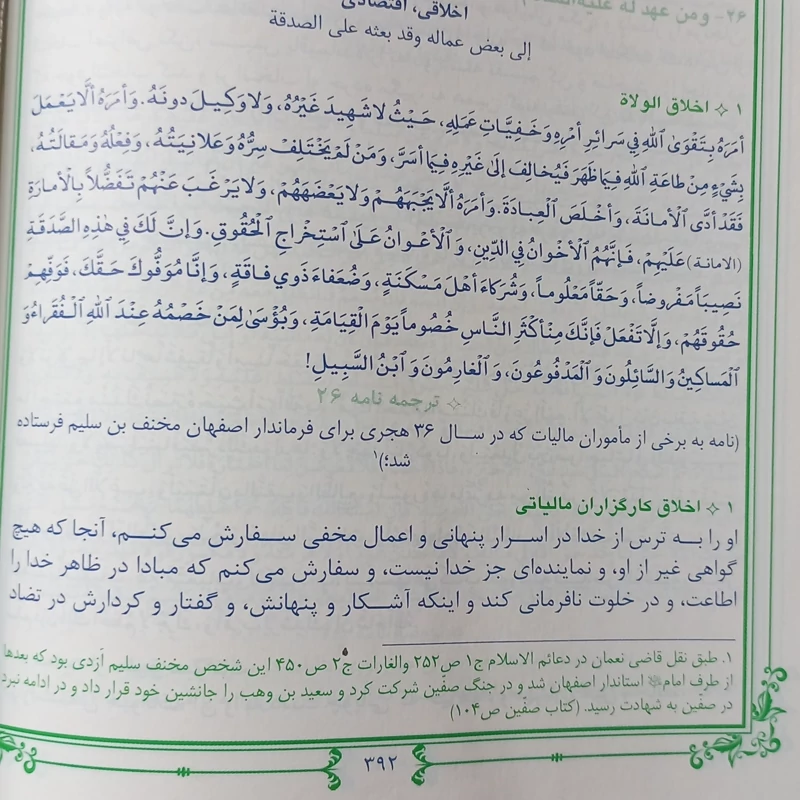 ۲۶- ومن عهد له علیه‌السلام
اخلاقی، اقتصادی
إلى بعض عماله وقد بعثه على الصدقة
۱ اخلاق الولاة
أمَرَهُ بِتَقْوَى اللهِ فِي سَرَائِرِ أمْرِهِ وَخَفِيَّاتِ عَمَلِهِ، حَيْثُ لَا شَهِيدَ غَيْرُهُ، وَلَا وَكِيلَ دونَهُ. وَأمَرَهُ ألَّا يَعْمَلَ
بِشَيْءٍ مِنْ طاعَةِ اللهِ فِيمَا ظَهَرَ فَيُخالِفَ إلىٰ غَيْرِهِ فِيمَا أسَرَّ، وَمَنْ لَمْ يَخْتَلِفْ سِرُّهُ وَعَلانِيَتُهُ، وَفِعْلُهُ وَمَقالَتُهُ،
فَقَدْ أدَّى الْأمانَةَ، وَأخْلَصَ الْعِبادَةَ. وَأمَرَهُ ألَّا يَجْبَهَهُمْ وَلَا يَعْضَهَهُمْ، وَلَا يَرْغَبَ عَنْهُمْ تَفَضُّلاً بِالْأمارَةِ
(الامانة) عَلَيْهِمْ، فَإنَّهُمُ الْأخْوانُ فِي الدِّينِ، وَ الْأعْوانُ عَلَى اسْتِخْراجِ الْحُقُوقِ. وَإنَّ لَكَ فِي هٰذِهِ الصَّدَقَةِ
نَصِيباً مَفْروضاً، وَحَقّاً مَعْلُوماً، وَشُرَكاءَ أهْلَ مَسْكَنَةٍ، وَضُعَفاءَ ذَوِي فاقَةٍ، وَإنَّا مُوَفُّوكَ حَقَّكَ، فَوَفِّهِمْ
حُقُوقَهُمْ، وَإلَّا تَفْعَلْ فَإنَّكَ مِنْ أكْثَرِ النَّاسِ خُصُوماً يَوْمَ الْقِيَامَةِ، وَبُؤْسَىٰ لِمَنْ خَصْمُهُ عِنْدَ اللهِ الْفُقَراءُ وَ
الْمَساكِينُ وَ السَّائِلُونَ وَ الْمَدْفُوعُونَ، وَ الْغارِمُونَ وَ ابْنُ السَّبِيلِ!
ترجمه نامه ۲۶
(نامه به برخی از مأموران مالیات که در سال ۳۶ هجری برای فرماندار اصفهان مخنف بن سلیم فرستاده
شد؛)۱
۱ اخلاق کارگزاران مالیاتی
او را به ترس از خدا در اسرار پنهانی و اعمال مخفی سفارش می‌کنم، آنجا که هیچ
گواهی غیر از او، و نماینده‌ای جز خدا نیست، و سفارش می‌کنم که مبادا در ظاهر خدا را
اطاعت، و در خلوت نافرمانی کند و اینکه آشکار و پنهانش، و گفتار و کردارش در تضاد
۱. طبق نقل قاضی نعمان در دعائم الاسلام ج۱ ص۲۵۲ والغارات ج۲ ص۴۵۰ این شخص مخنف سلیم آزدی بود که بعدها
از طرف امام استاندار اصفهان شد و در جنگ صفّین شرکت کرد و سعید بن وهب را جانشین خود قرار داد و در ادامه نبرد
در صفّین به شهادت رسید. (کتاب صفّین ص۱۰۴)
۳۹۲